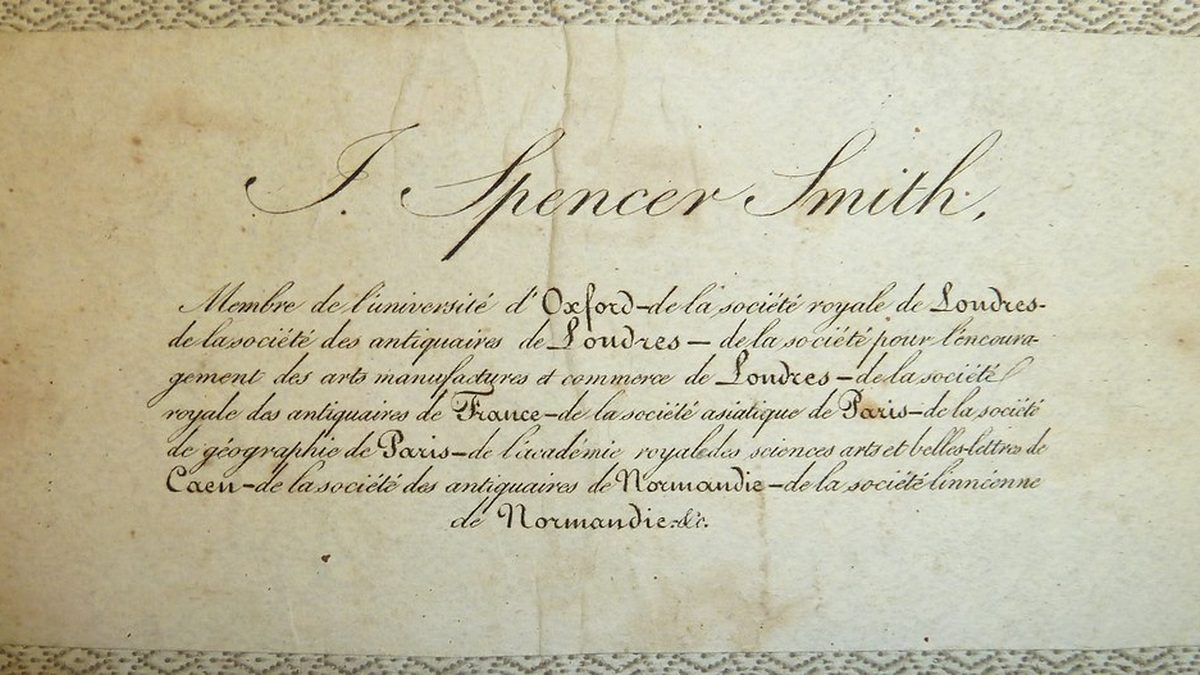 J. Spencer Smith,
Membre de l'université d'Oxford-de la société royale de Londres-
de la société des antiquaires de Londres — de la société pour l'encoura-
gement des arts manufactures et commerce de Londres — de la société
royale des antiquaires de France - de la société asiatique de Paris - de la société
de géographie de Paris - de l'académie royale des sciences arts et belles-lettres de
Caen - de la société des antiquaires de Normandie - de la société linnéenne
de Normandie &c.